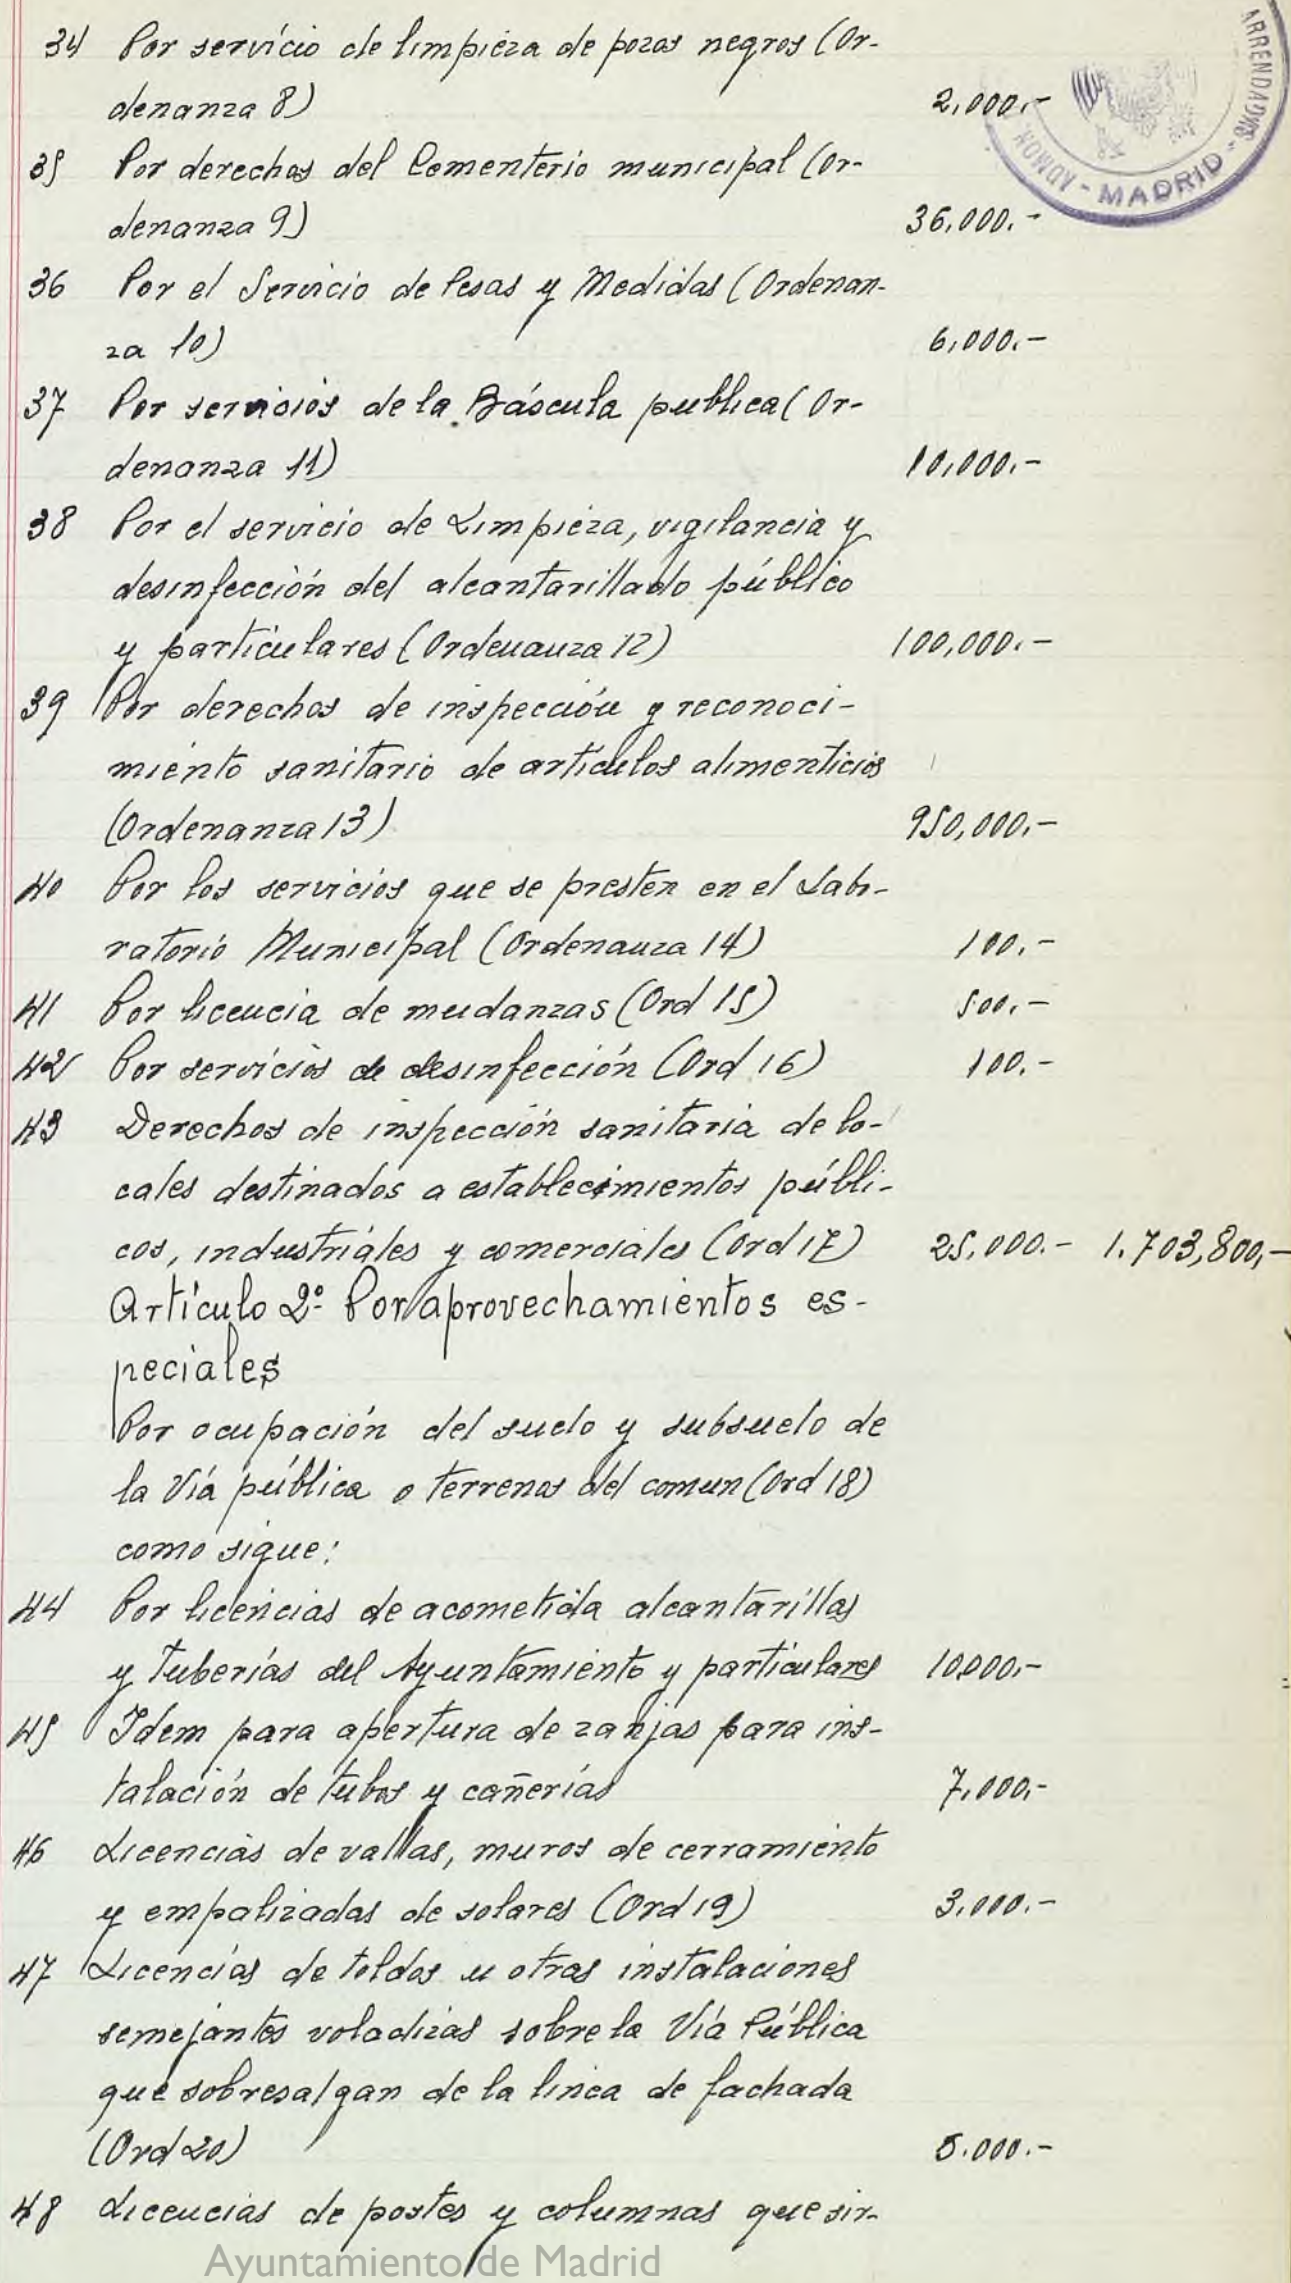 34 Por servicio de limpieza de pozos negros (Or-
denanza 8) 2,000.-
35 Por derechos del Cementerio municipal (Or-
denanza 9) 36,000.-
36 Por el Servicio de Pesas y Medidas (Ordenan-
za 10) 6,000.-
37 Por servicios de la Báscula publica (Or-
denanza 11) 10,000.-
38 Por el servicio de Limpieza, vigilancia y
desinfección del alcantarillado público
y particulares (Ordenanza 12) 100,000.-
39 Por derechos de inspección y reconoci-
miento sanitario de artículos alimenticios
(Ordenanza 13) 950,000.-
40 Por los servicios que se presten en el Labo-
ratorio Municipal (Ordenanza 14) 100.-
41 Por licencia de mudanzas (Ord 15) 500.-
42 Por servicios de desinfección (Ord 16) 100.-
43 Derechos de inspección sanitaria de lo-
cales destinados a establecimientos públi-
cos, industriales y comerciales (Ord 17) 25.000.- 1.703,800,-
Artículo 2º Por aprovechamientos es-
peciales
Por ocupación del suelo y subsuelo de
la Vía pública o terrenos del comun (Ord 18)
como sigue:
44 Por licencias de acometida alcantarillas
y tuberías del Ayuntamiento y particulares 10,000.-
45 Idem para apertura de zanjas para ins-
talación de tubos y cañerías 7,000,-
46 Licencias de vallas, muros de cerramiento
y empalizadas de solares (Ord 19) 3.000.-
47 Licencias de toldos u otras instalaciones
semejantes voladizas sobre la Vía Pública
que sobresalgan de la linea de fachada
(Ord 20) 5.000.-
48 Licencias de postes y columnas que sir-
ARRENDADAS - ADMON. - MADRID -
Ayuntamiento de Madrid